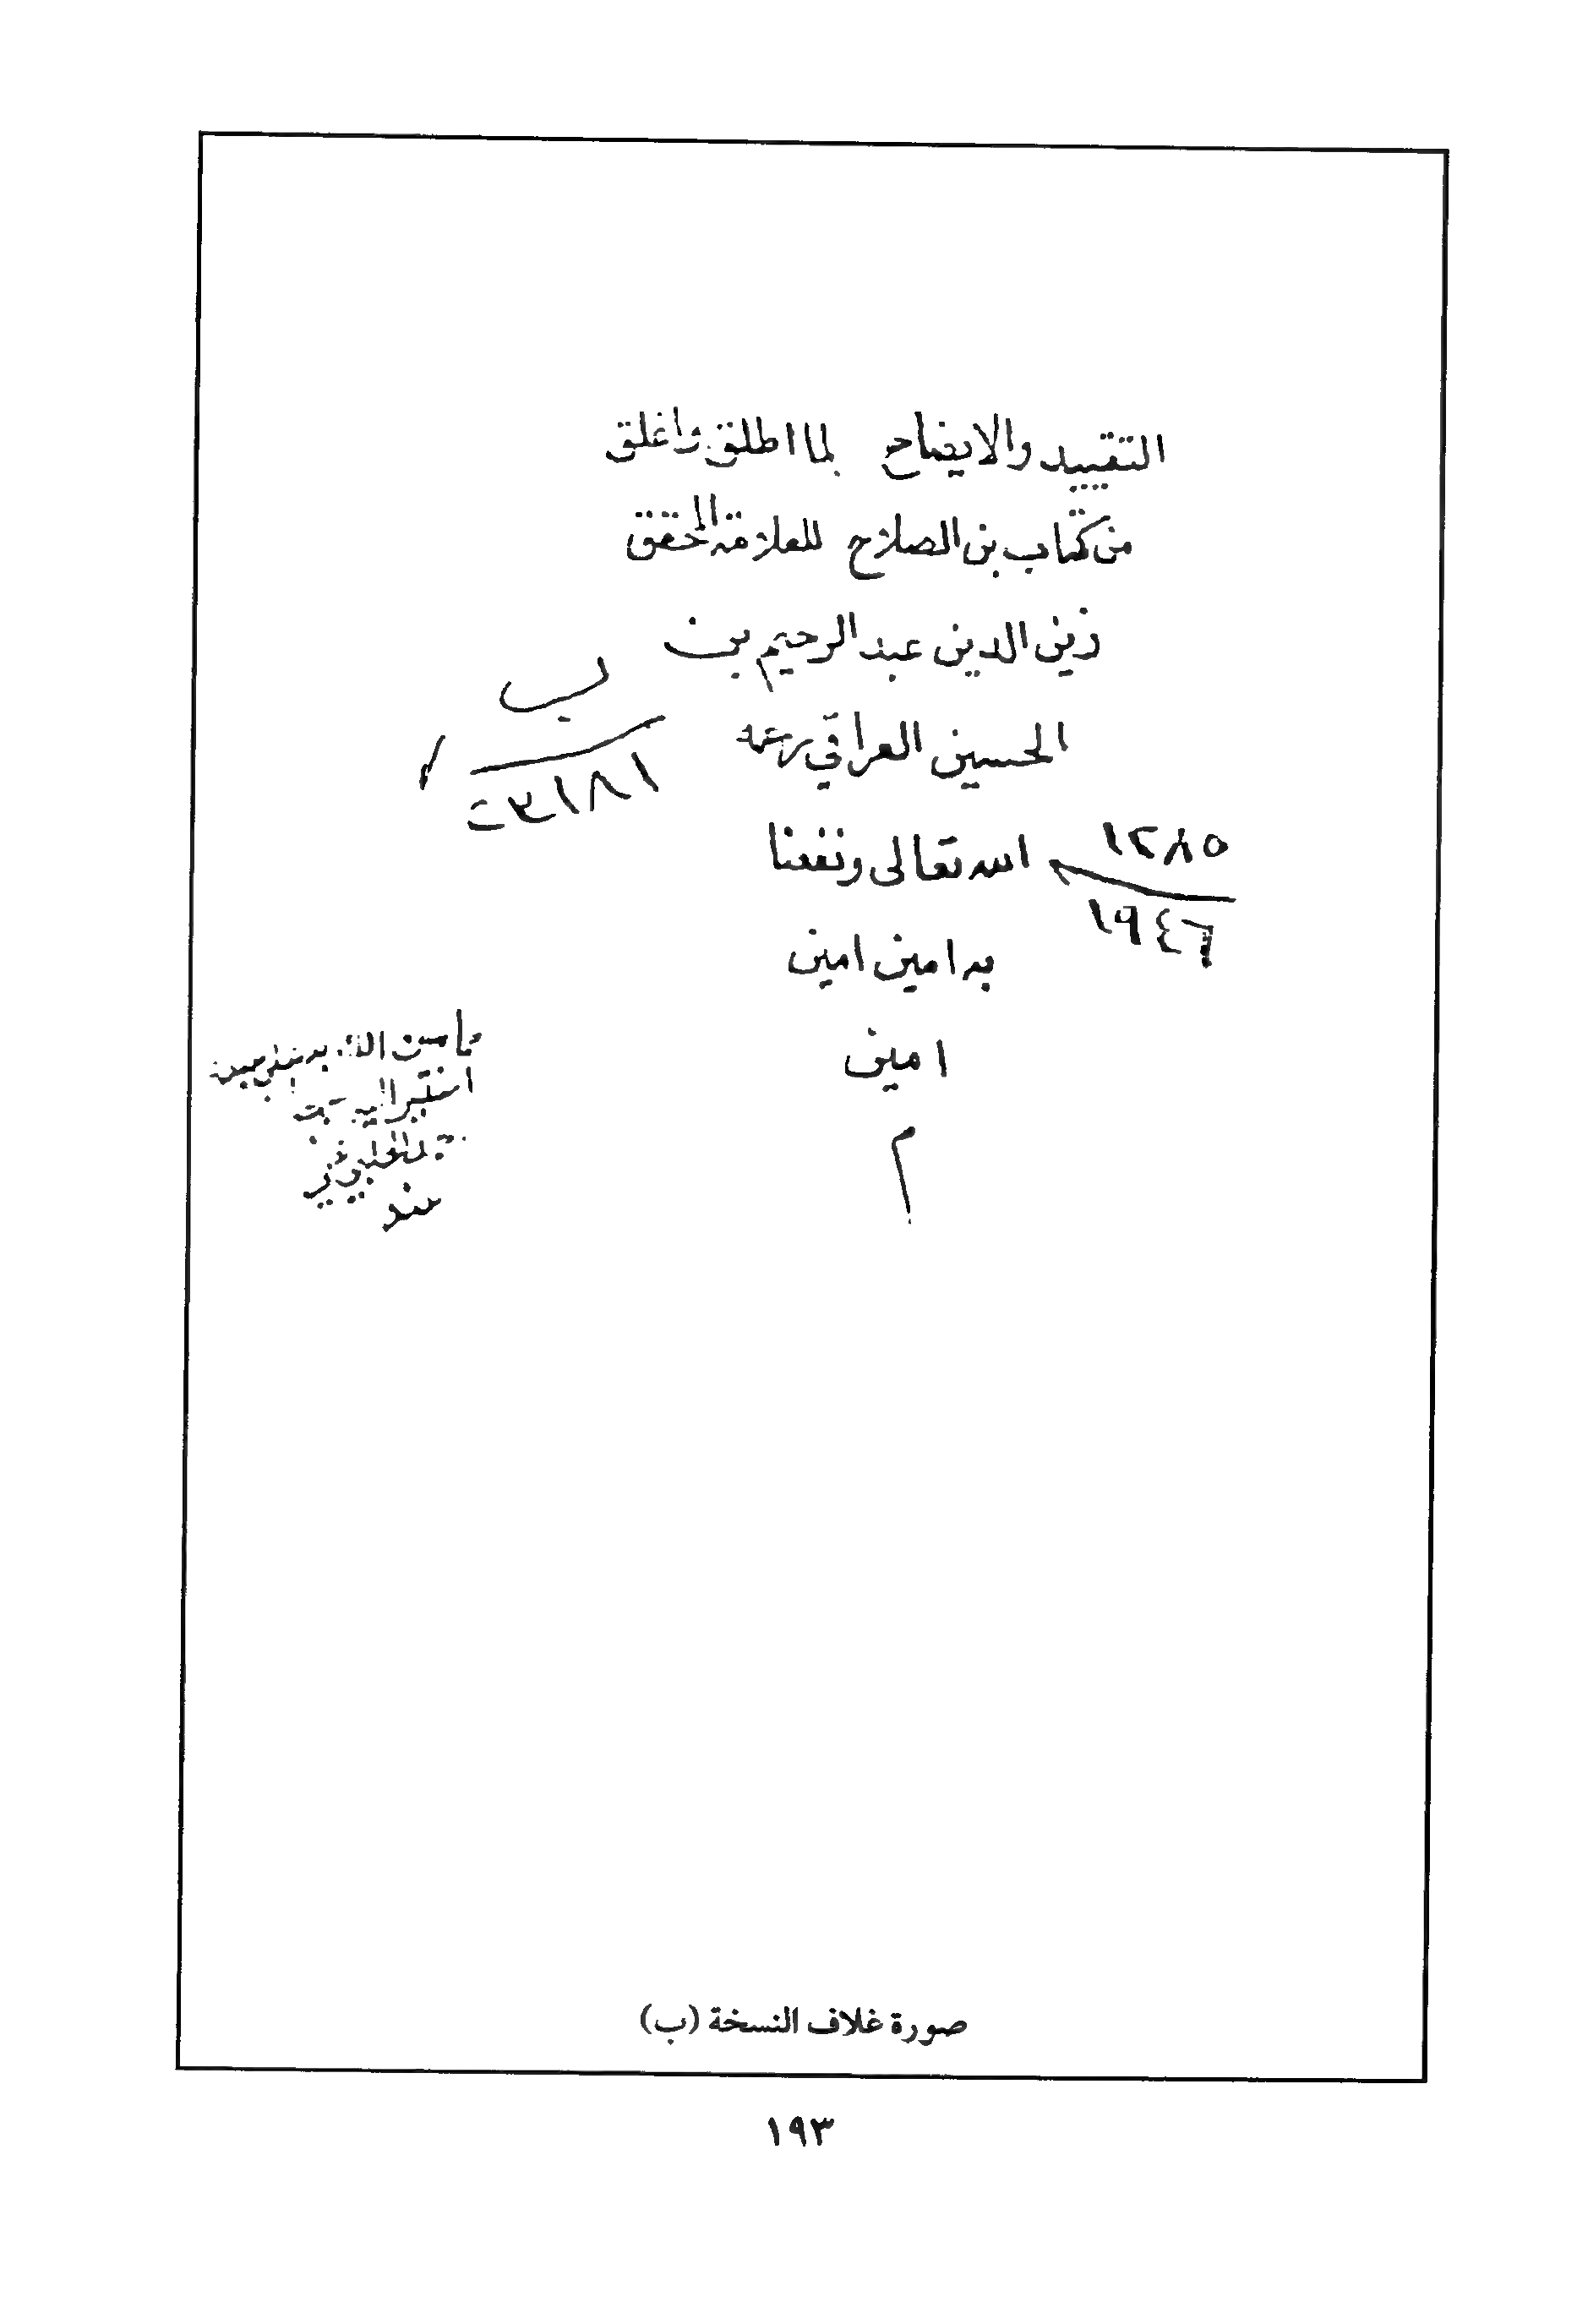 التقييد والايضاح لما اطلق واغلق
من كتاب بن الصلاح للعلامة المحقق
زين الدين عبد الرحيم بن
الحسين العراقي رحمه
الله تعالى ونفعنا
به امين امين
امين
م
ب
١٨١٣ت
١٢٨٥
١٩٤٦
صورة غلاف النسخة (ب)
١٩٣